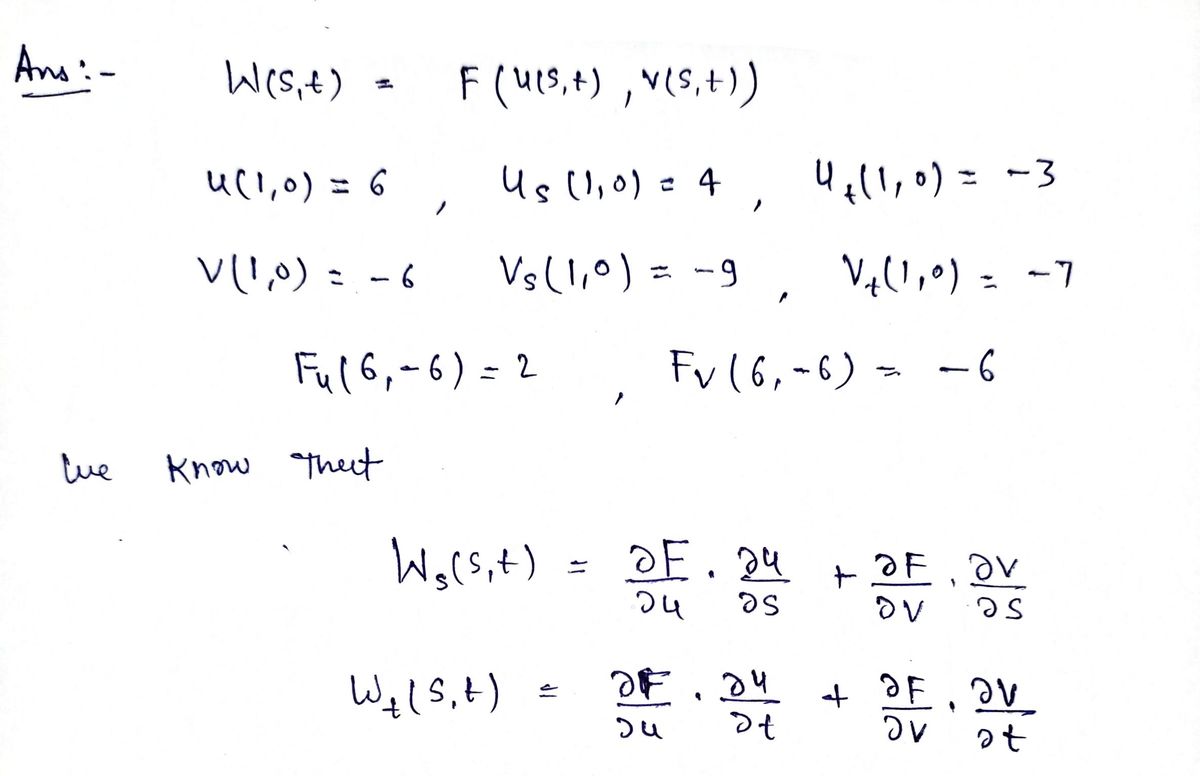 Ans :- W(s,t) = F(u(s,t), v(s,t))
u(1,0) = 6 , u_s(1,0) = 4 , u_t(1,0) = -3
v(1,0) = -6 v_s(1,0) = -9 , v_t(1,0) = -7
F_u(6,-6) = 2 , F_v(6,-6) = -6
We know that
W_s(s,t) = ∂F/∂u . ∂u/∂s + ∂F/∂v . ∂v/∂s
W_t(s,t) = ∂F/∂u . ∂u/∂t + ∂F/∂v . ∂v/∂t